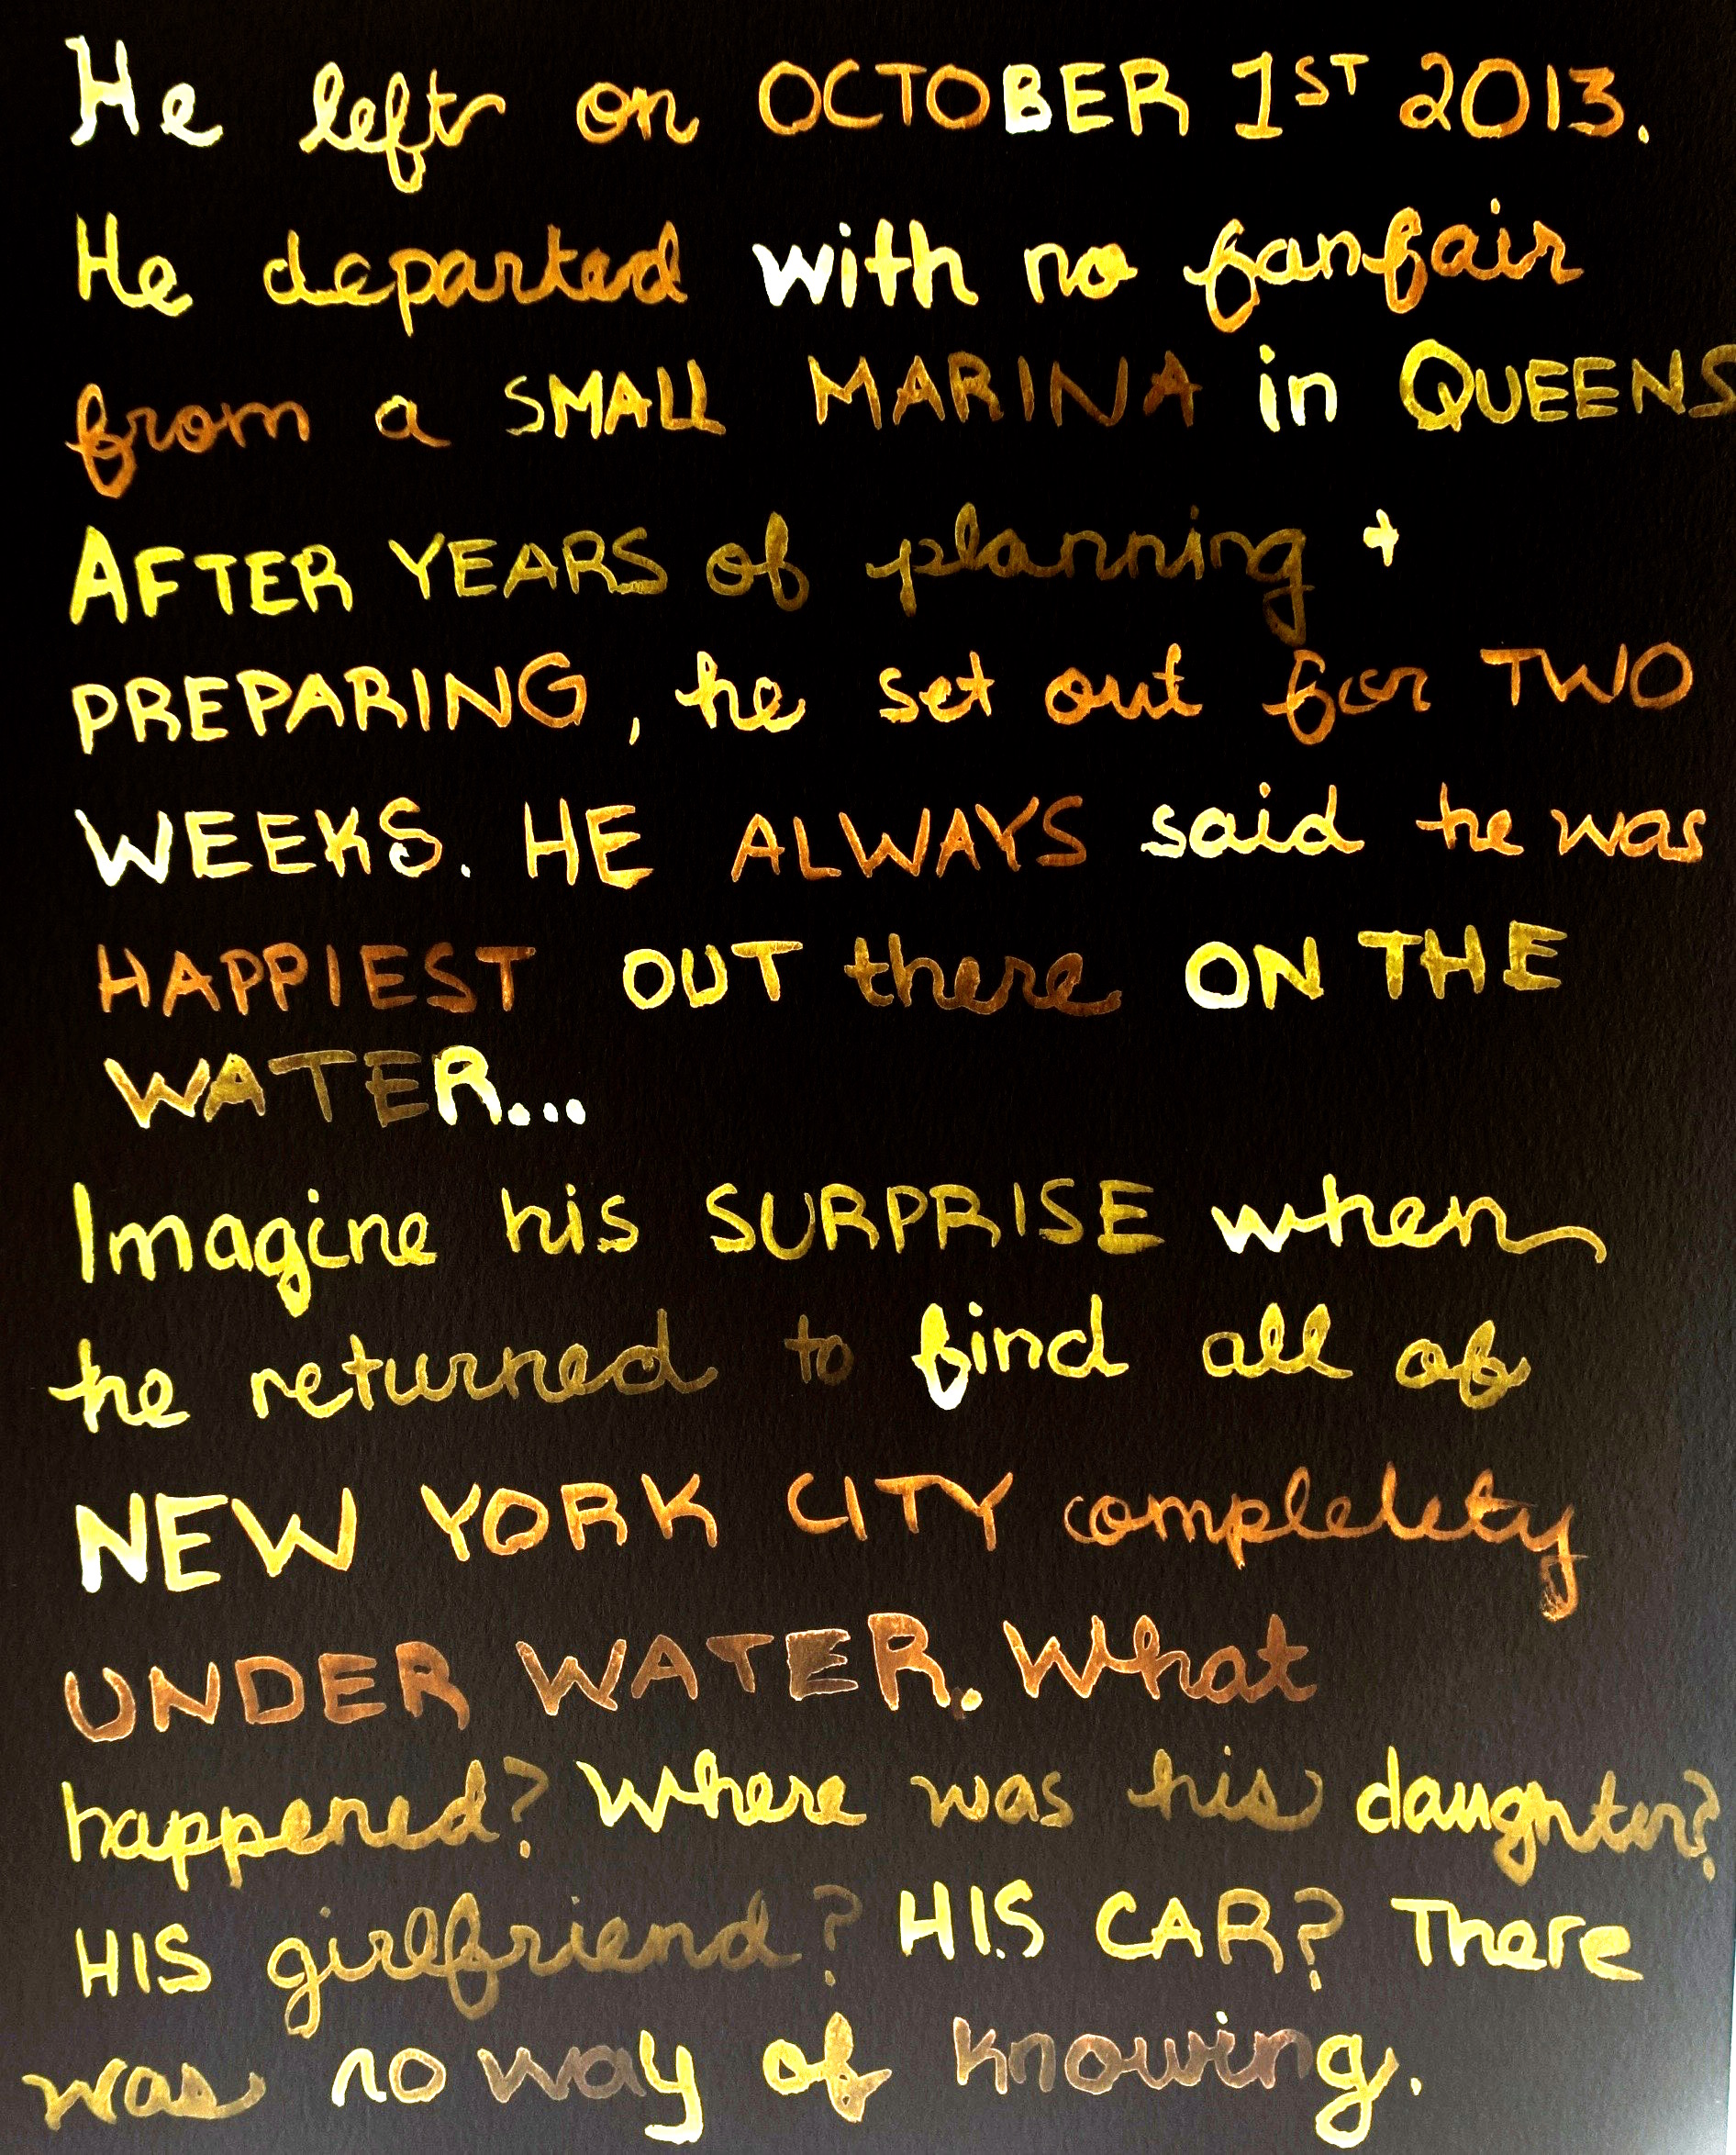 He left on OCTOBER 1ST 2013.
He departed with no fanfair
from a SMALL MARINA in QUEENS
AFTER YEARS of planning +
PREPARING, he set out for TWO
WEEKS. HE ALWAYS said he was
HAPPIEST OUT there ON THE
WATER...
Imagine his SURPRISE when
he returned to find all of
NEW YORK CITY completety
UNDER WATER. What
happened? Where was his daughter?
HIS girlfriend? HIS CAR? There
was no way of knowing.